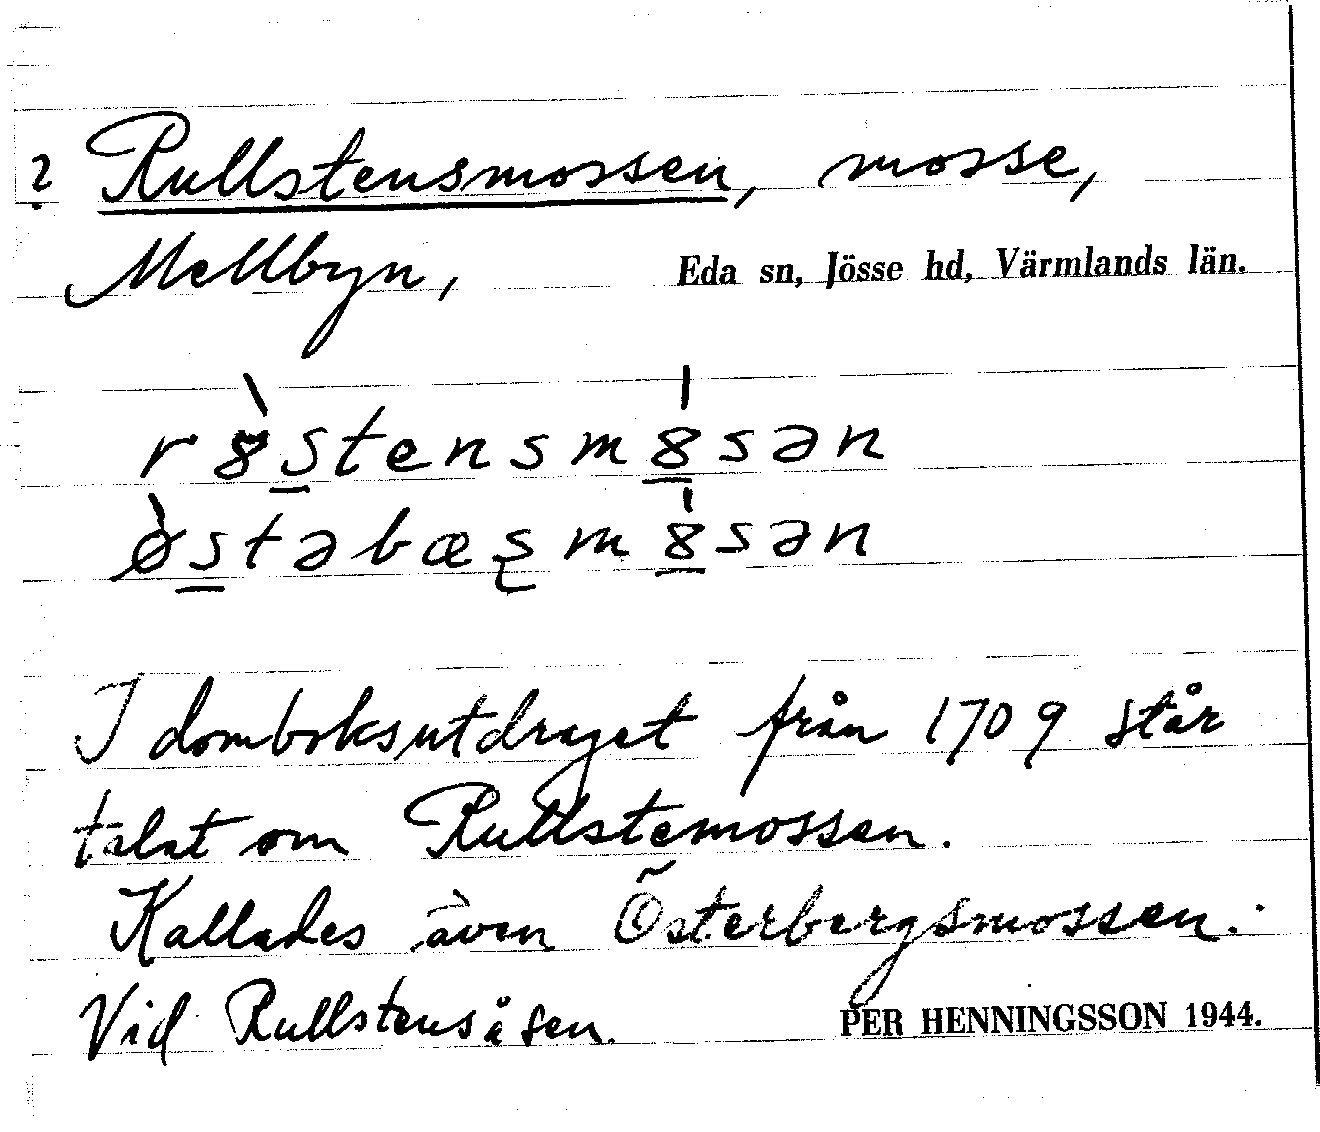 ? Rullstensmossen, mosse,
Mellbyn, Eda sn, Jösse hd, Värmlands län.
r8̀stensm8̍sən
ø̀stəbæʂm8̍sən
I domboksutdraget från 1709 står
talat om Rullstemossen.
Kallades även Österbergsmossen.
Vid Rullstensåsen. PER HENNINGSSON 1944.